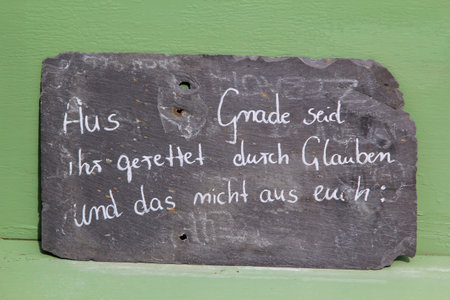 Aus Gnade seid
ihr gerettet durch Glauben
und das nicht aus euch: